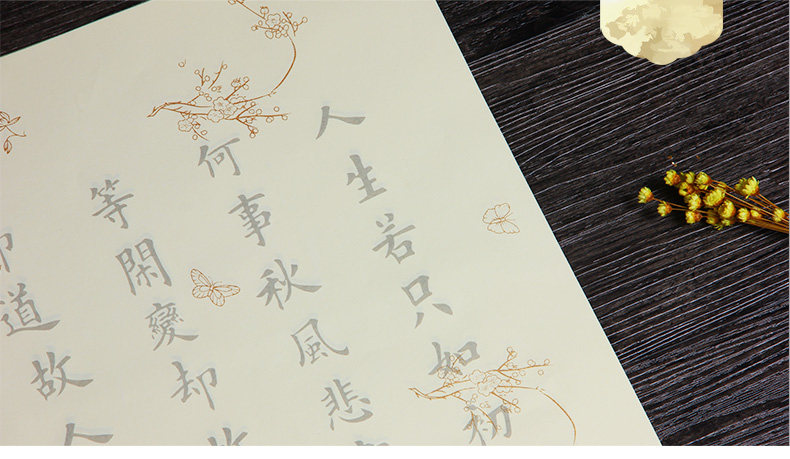 人生若只如初
何事秋風悲
等閑變却
道故人